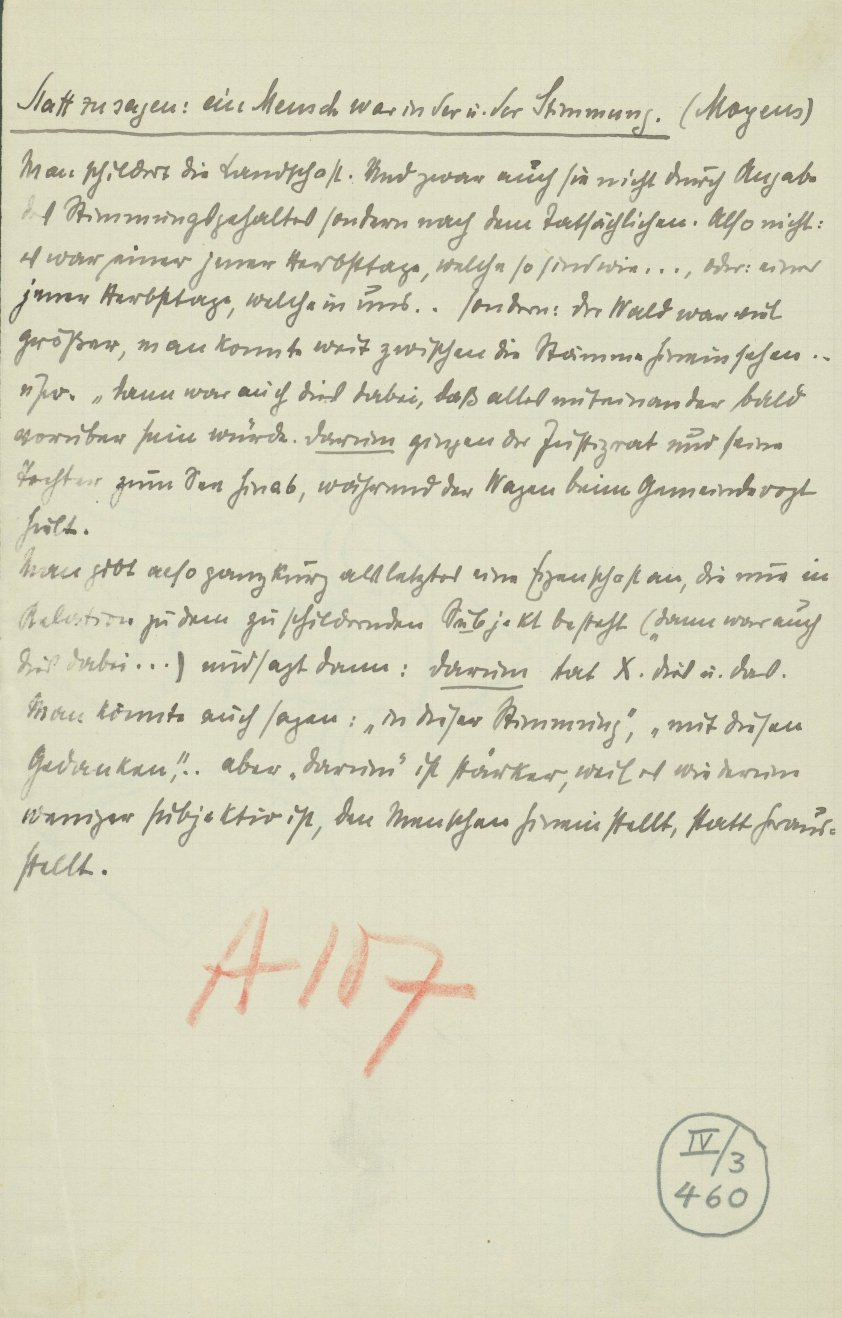 Statt zu sagen: ein Mensch war in der u. der Stimmung. (Mogens)
Man schildert die Landschaft. Und zwar auch sie nicht durch Angabe
des Stimmungsgehaltes sondern nach dem Tatsächlichen. Also nicht:
es war einer jener Herbsttage, welche so sind wie..., oder: einer
jener Herbsttage, welche in uns.. sondern: der Wald war viel
größer, man konnte weit zwischen die Stämme hineinsehen ..
usw. „dann war auch dies dabei, daß alles miteinander bald
vorüber sein würde. Darum gingen der Justizrat und seine
Tochter zum See hinab, während der Wagen beim Gemeindevogt
hielt.
Man gibt also ganz kurz als letztes eine Eigenschaft an, die nur in
Relation zu dem zu schildernden Subjekt besteht („dann war auch
dies dabei...) und sagt dann: darum tat X. dies u. das.
Man könnte auch sagen: „in dieser Stimmung", „mit diesen
Gedanken",.. aber „darum" ist stärker, weil es wiederum
weniger subjektiv ist, den Menschen hineinstellt, statt heraus=
stellt.
A 107
IV/3
460